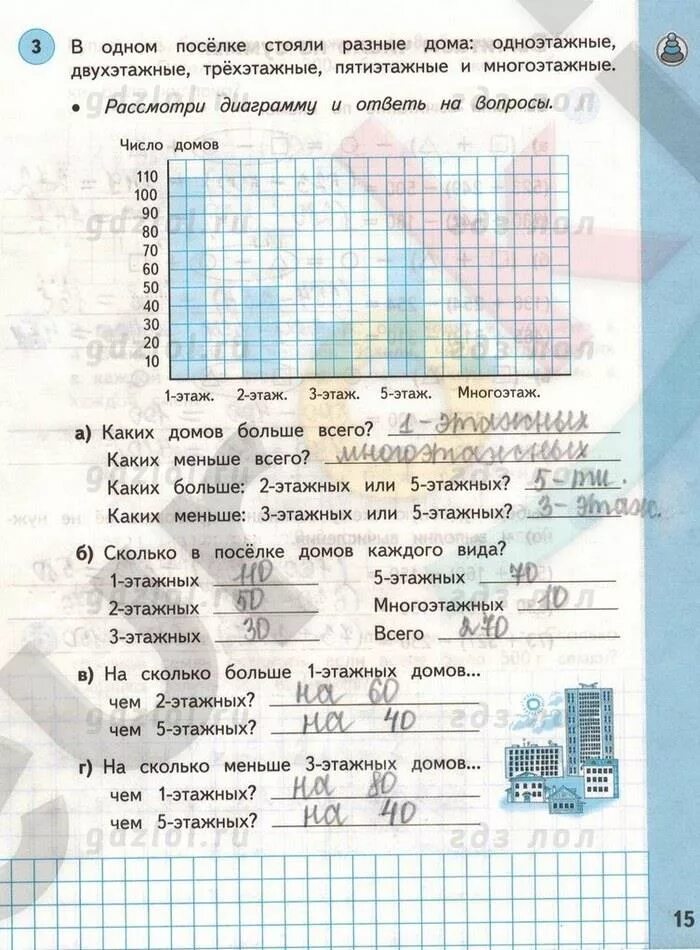 3 В одном посёлке стояли разные дома: одноэтажные,
двухэтажные, трёхэтажные, пятиэтажные и многоэтажные.
• Рассмотри диаграмму и ответь на вопросы.
Число домов
110
100
90
80
70
60
50
40
30
20
10
1-этаж. 2-этаж. 3-этаж. 5-этаж. Многоэтаж.
а) Каких домов больше всего? 1-этажных
Каких меньше всего? многоэтажных
Каких больше: 2-этажных или 5-этажных? 5-ти.
Каких меньше: 3-этажных или 5-этажных? 3-этаж.
б) Сколько в посёлке домов каждого вида?
1-этажных 110 5-этажных 70
2-этажных 50 Многоэтажных 10
3-этажных 30 Всего 270
в) На сколько больше 1-этажных домов...
чем 2-этажных? на 60
чем 5-этажных? на 40
г) На сколько меньше 3-этажных домов...
чем 1-этажных? на 80
чем 5-этажных? на 40
gdzlol.ru гдз лол
15